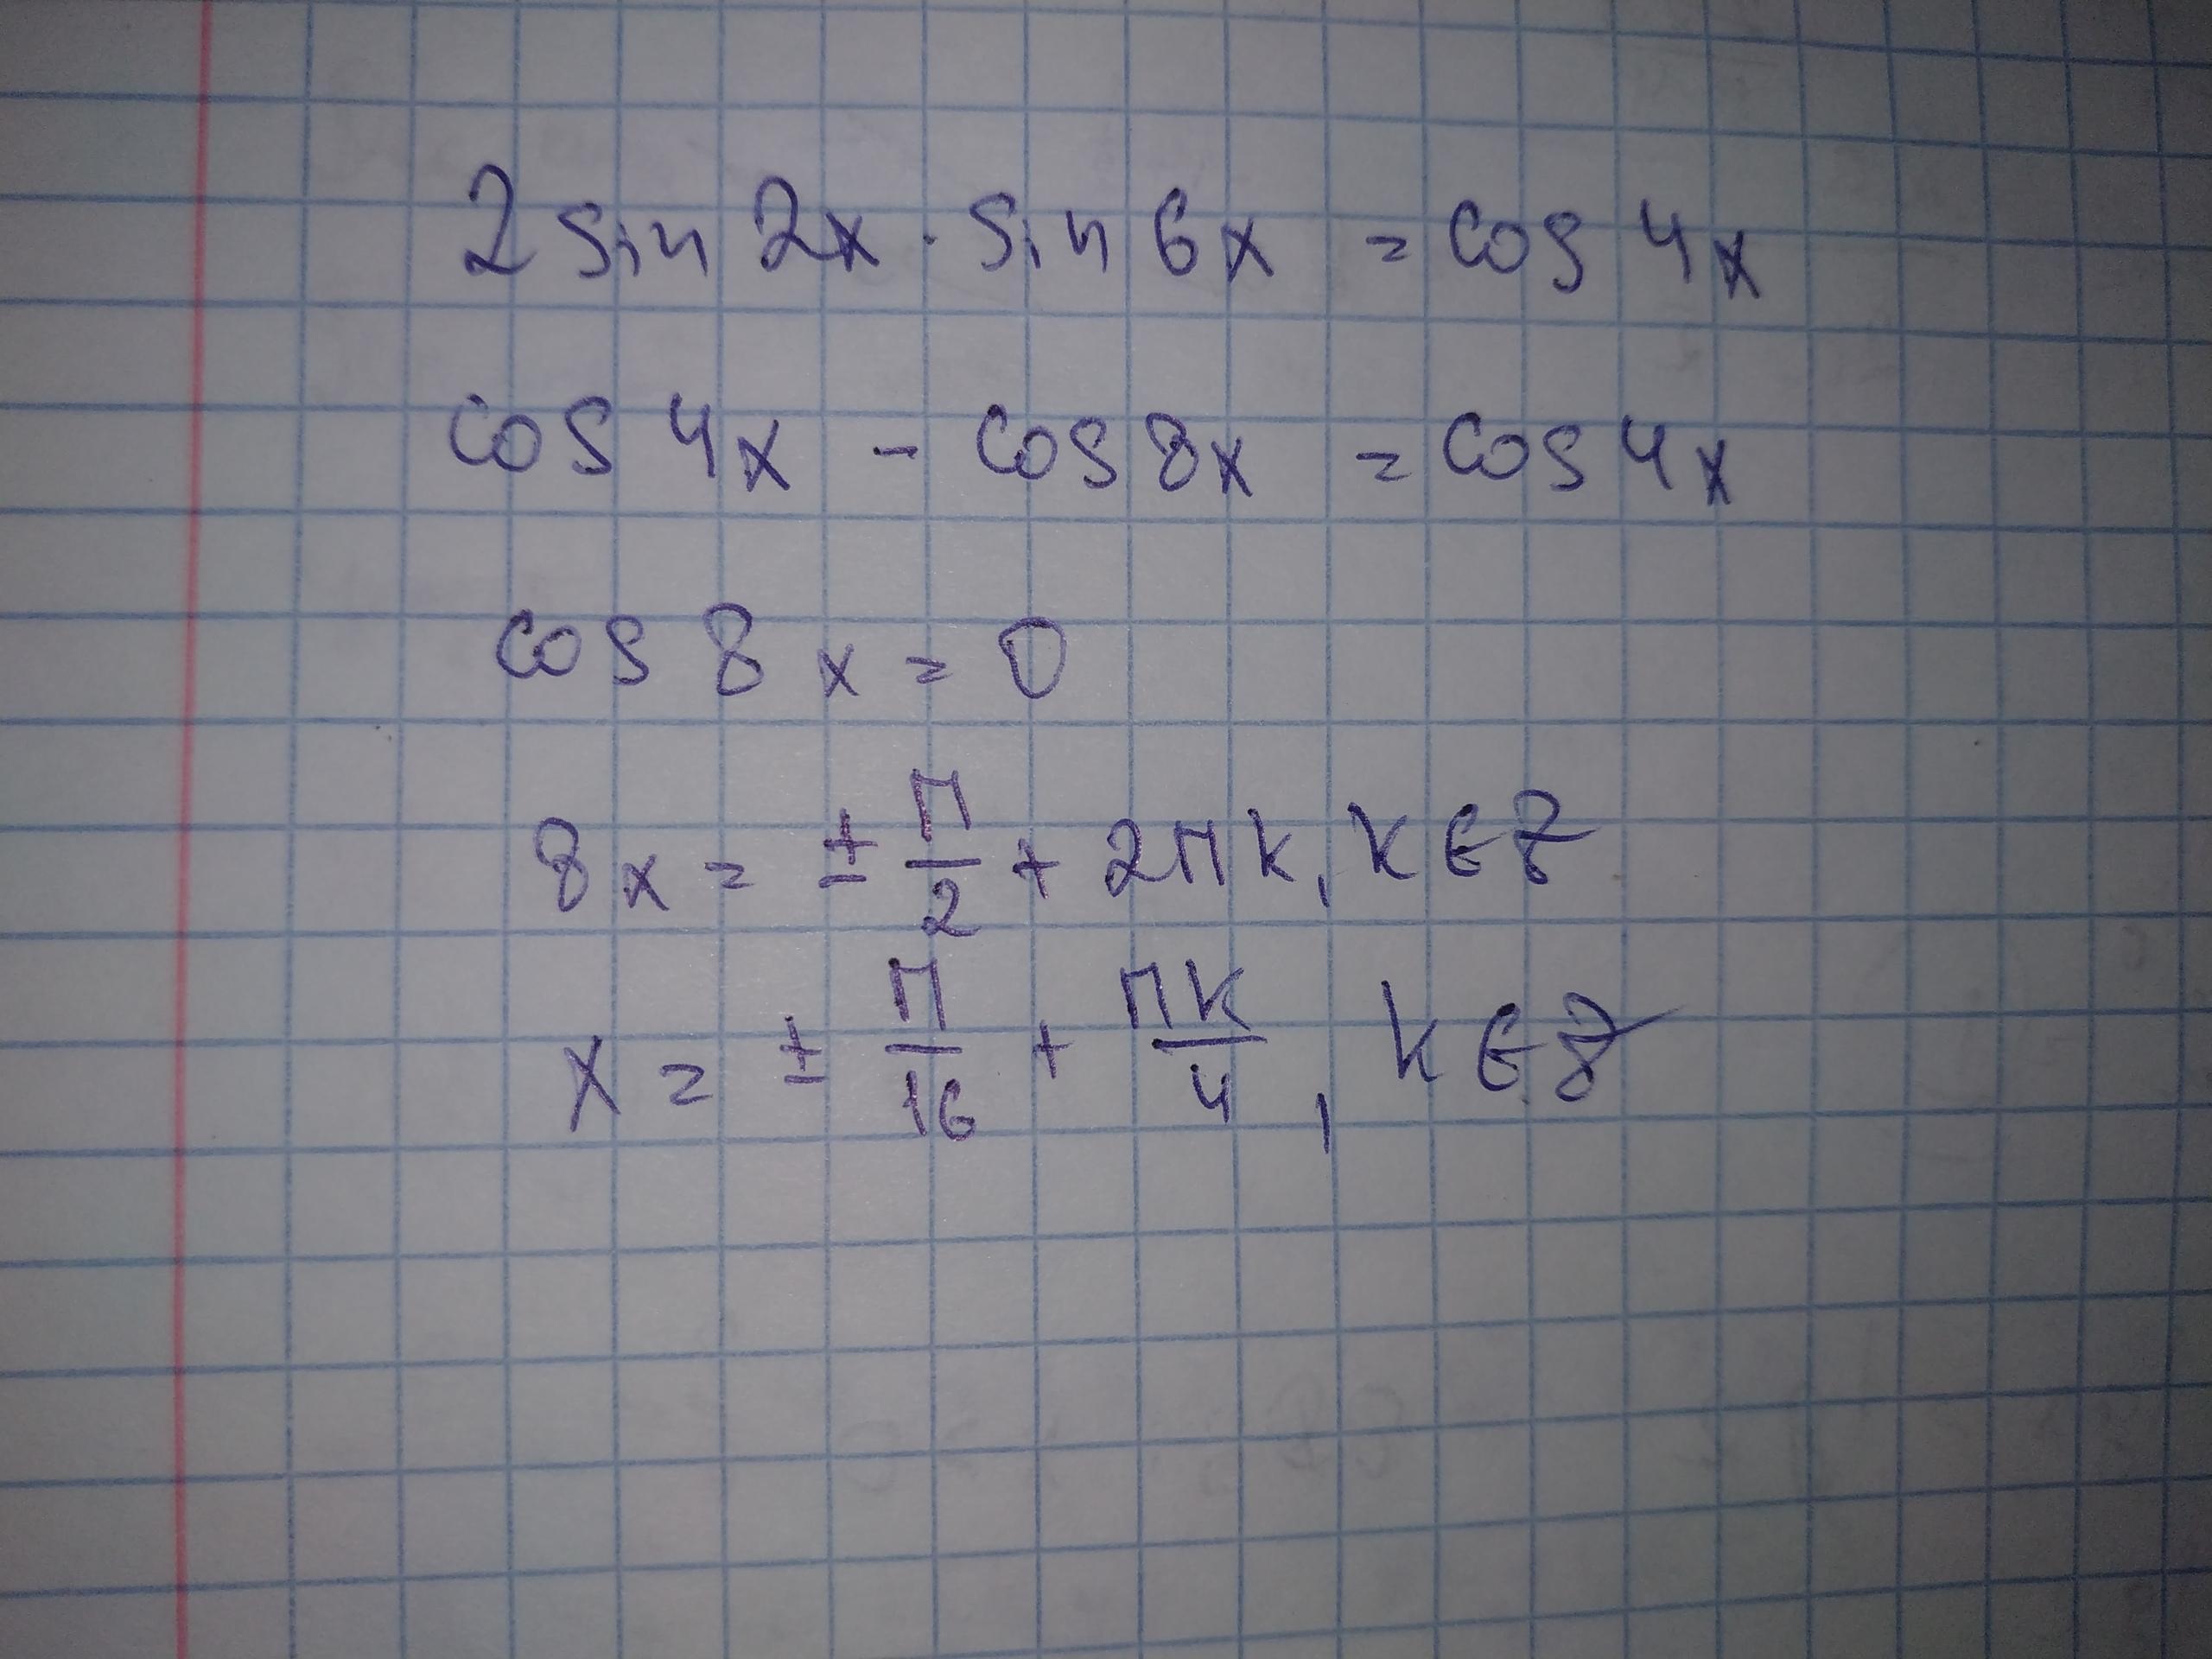 2 sin 2x · sin 6x = cos 4x
cos 4x - cos 8x = cos 4x
cos 8x = 0
8x = ± π/2 + 2πk, k ∈ Z
x = ± π/16 + πk/4, k ∈ Z